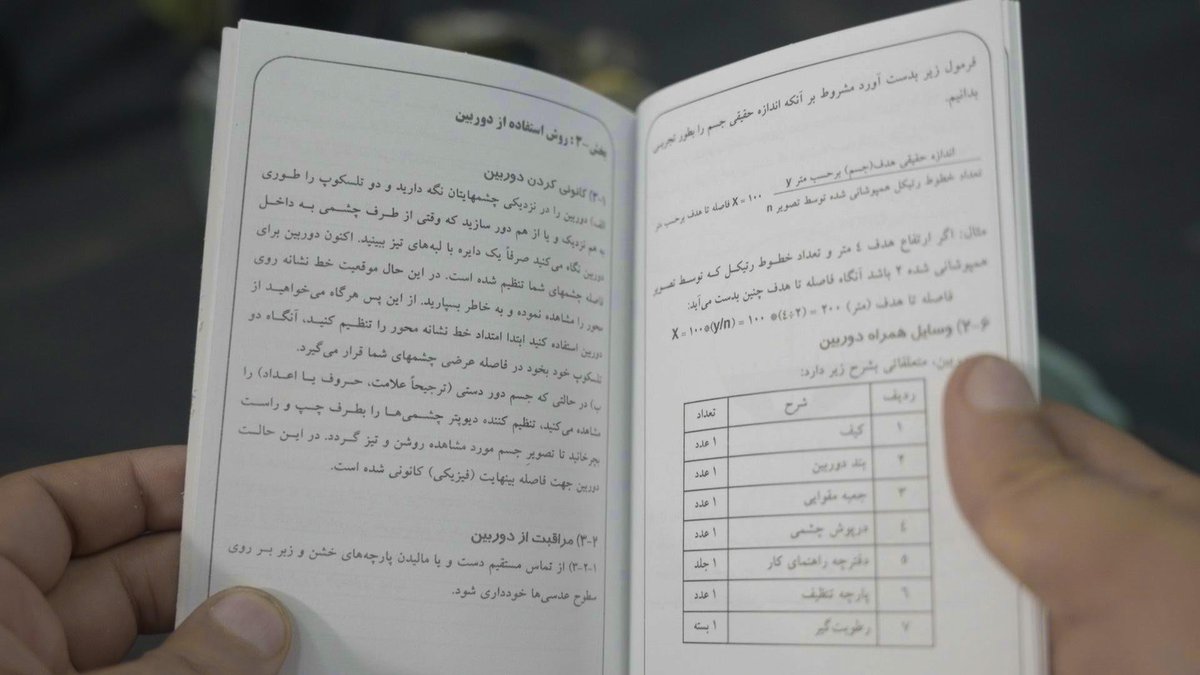 فرمول زیر بدست آورد مشروط بر آنکه اندازه حقیقی جسم را بطور تجربی
بدانیم.
اندازه حقیقی هدف(جسم) برحسب متر y
فاصله تا هدف برحسب متر X = ۱۰۰
تعداد خطوط رتیکل همپوشانی شده توسط تصویر n
مثال: اگر ارتفاع هدف ٤ متر و تعداد خطوط رتیکل که توسط تصویر
همپوشانی شده ۲ باشد آنگاه فاصله تا هدف چنین بدست می‌آید:
فاصله تا هدف (متر) X = ۱۰۰*(y/n) = ۱۰۰ *(٤÷۲) = ۲۰۰
۲-۶) وسایل همراه دوربین
متعلقاتی بشرح زیر دارد:
ردیف شرح تعداد
۱ کیف ۱ عدد
۲ بند دوربین ۱ عدد
۳ جعبه مقوایی ۱ عدد
٤ درپوش چشمی ۱ عدد
۵ دفترچه راهنمای کار ۱ جلد
۶ پارچه تنظیف ۱ عدد
۷ رطوبت‌گیر ۱ بسته
بخش -۳ : روش استفاده از دوربین
۳-۱) کانونی کردن دوربین
الف) دوربین را در نزدیکی چشمهایتان نگه دارید و دو تلسکوپ را طوری
به هم نزدیک و یا از هم دور سازید که وقتی از طرف چشمی به داخل
دوربین نگاه می‌کنید صرفاً یک دایره با لبه‌های تیز ببینید. اکنون دوربین برای
فاصله چشمهای شما تنظیم شده است. در این حال موقعیت خط نشانه روی
محور را مشاهده نموده و به خاطر بسپارید. از این پس هرگاه می‌خواهید از
دوربین استفاده کنید ابتدا امتداد خط نشانه محور را تنظیم کنید، آنگاه دو
تلسکوپ خود بخود در فاصله عرضی چشمهای شما قرار می‌گیرد.
ب) در حالتی که جسم دور دستی (ترجیحاً علامت، حروف یا اعداد) را
مشاهده می‌کنید، تنظیم کننده دیوپتر چشمی‌ها را بطرف چپ و راست
بچرخانید تا تصویر جسم مورد مشاهده روشن و تیز گردد. در این حالت
دوربین جهت فاصله بینهایت (فیزیکی) کانونی شده است.
۳-۲) مراقبت از دوربین
۳-۲-۱) از تماس مستقیم دست و یا مالیدن پارچه‌های خشن و زبر بر روی
سطوح عدسی‌ها خودداری شود.